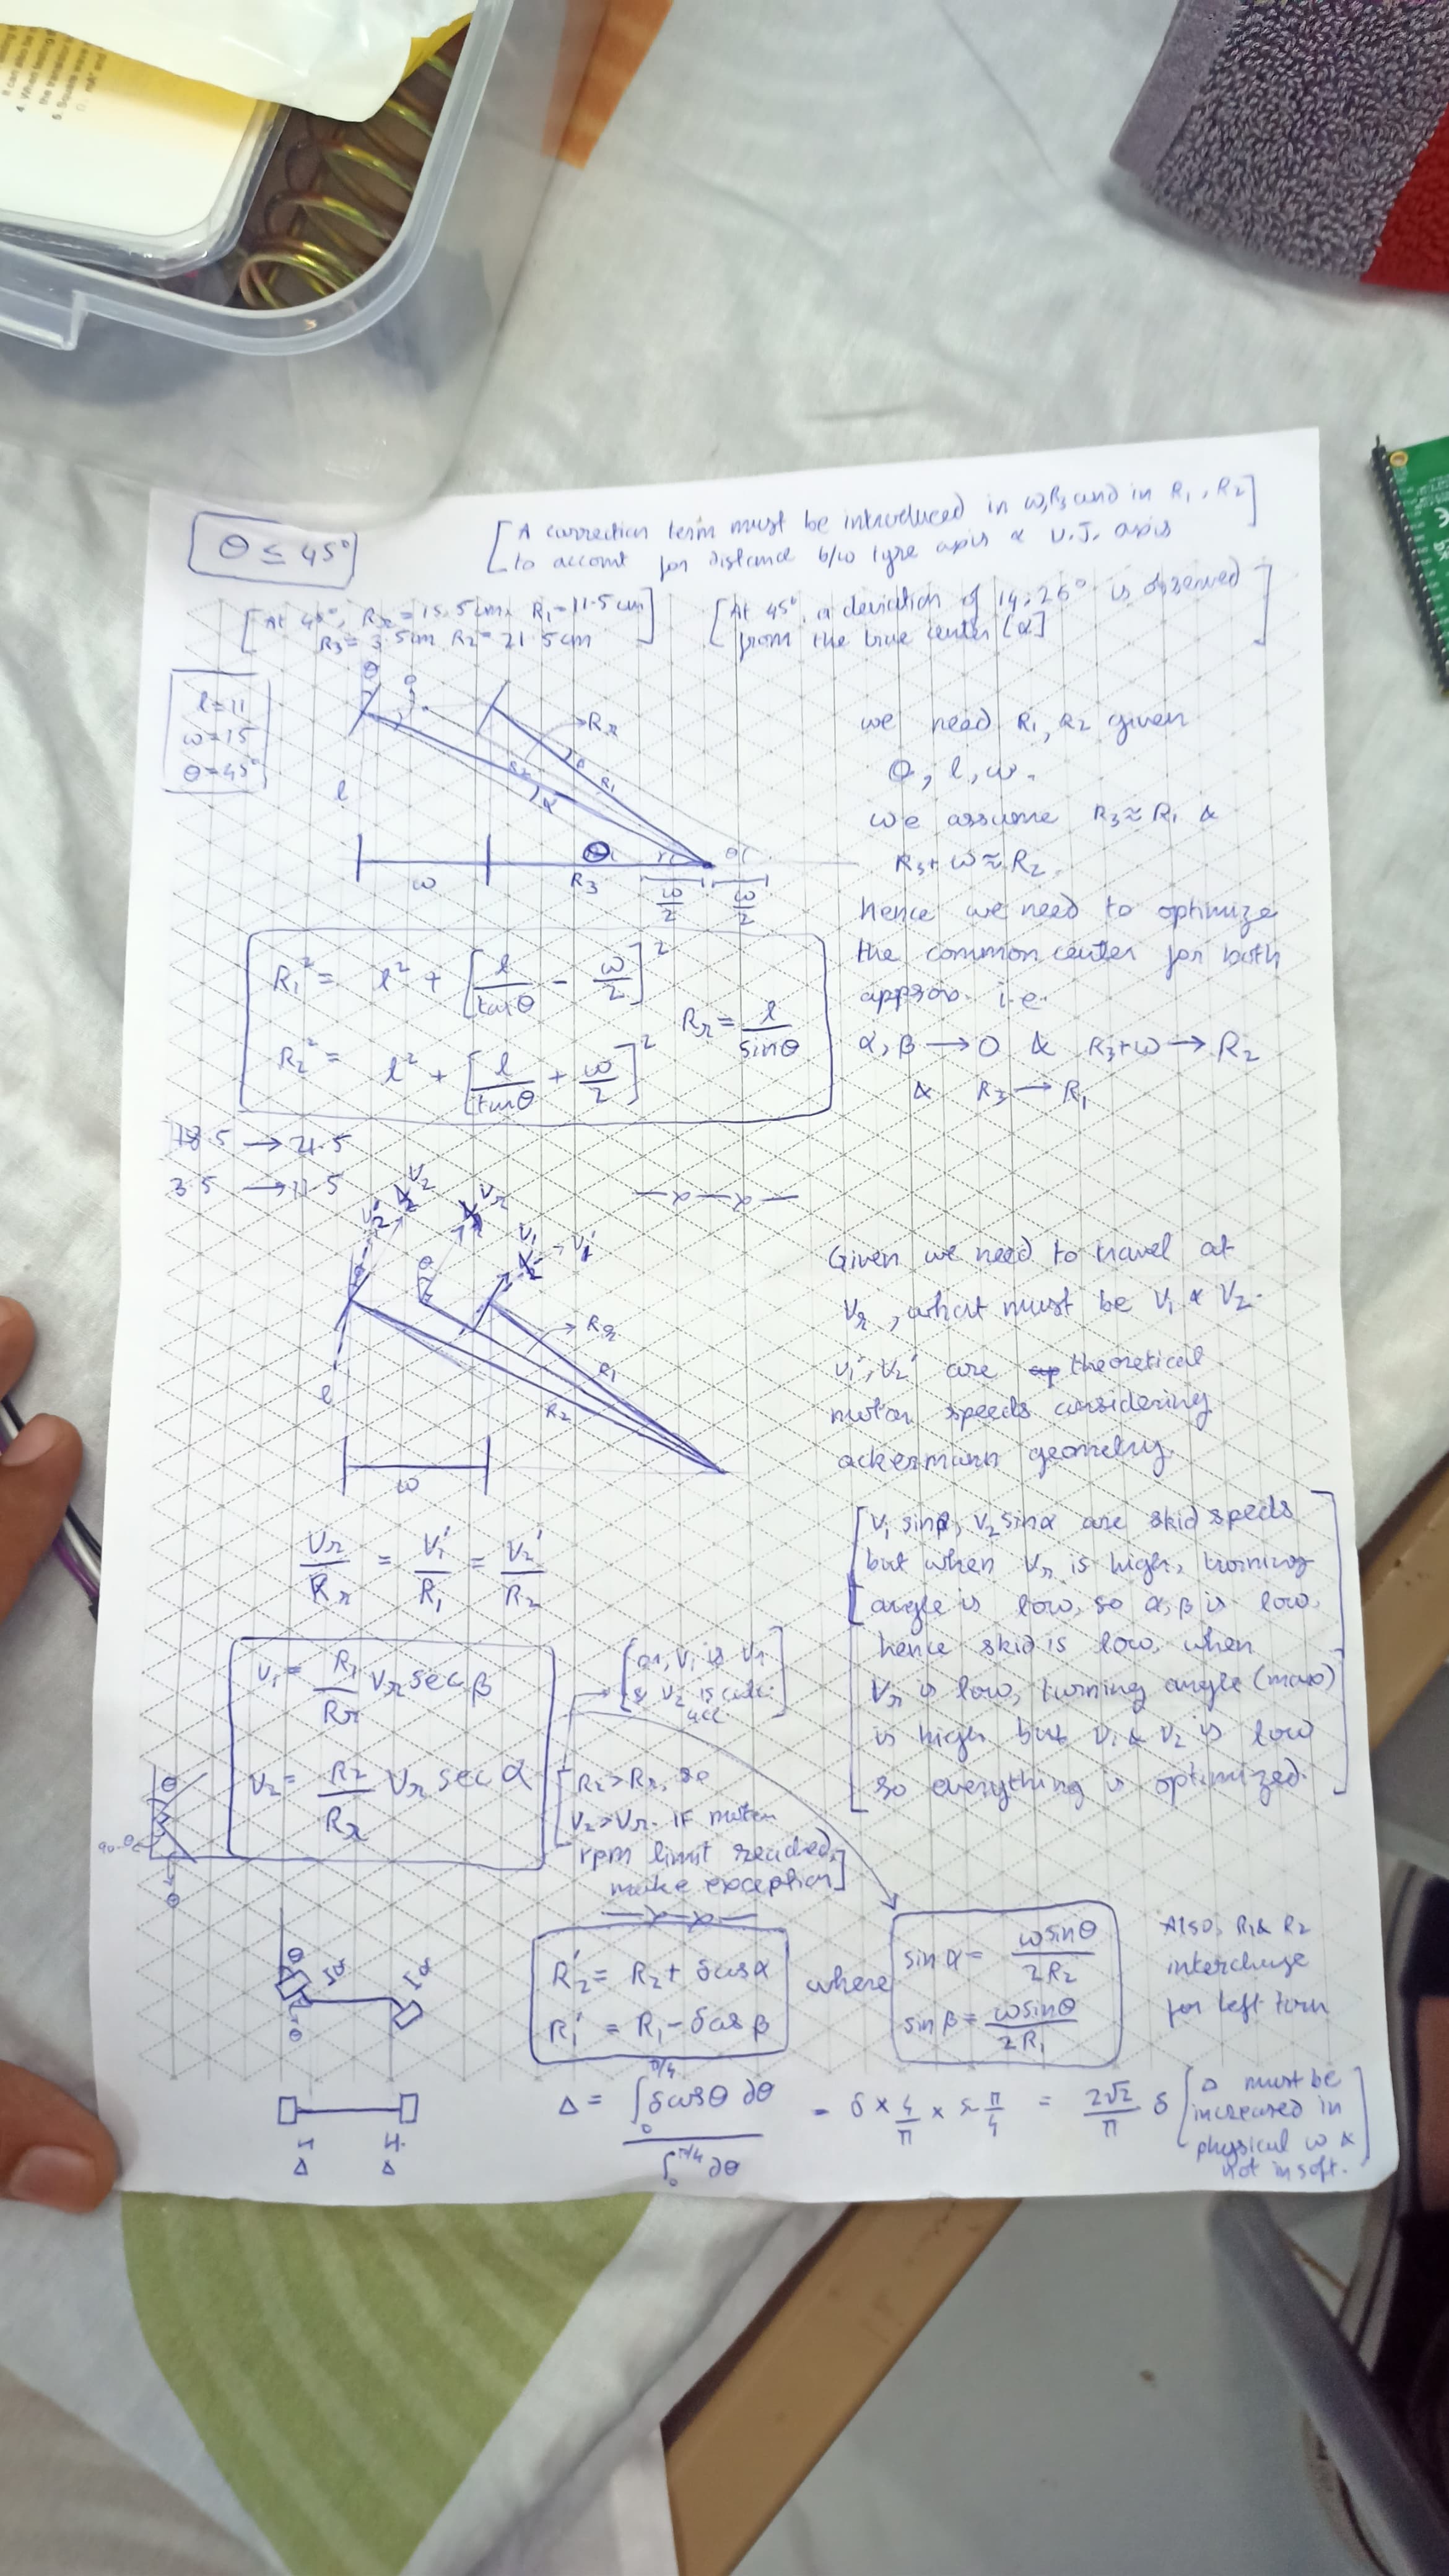 it can also be
4. When testing
the transistor
5. Square wave
θ ≤ 45°
[A correction term must be introduced in ω, R3 and in R1, R2]
[to account for distance b/w tyre axis & U.J. axis
[At 45°, Rr = 15.5cm, R1 = 11.5 cm]
R3 = 3.5cm R2 = 21.5cm
[At 45°, a deviation of 14.26° is observed
from the true center [α]]
l=11
ω=15
θ=45°
θ
θ
Rr
R2
R1
α
l
ω
R3
ω/2
ω/2
we need R1, R2 given
θ, l, ω.
we assume R3 ≈ R1 &
R3 + ω ≈ R2.
hence we need to optimize
the common center for both
approx. i.e.
α, β → 0 & R3+ω → R2
& R3 → R1
R1² = l² + [l/tanθ - ω/2]²
Rr = l/sinθ
R2² = l² + [l/tanθ + ω/2]²
18.5 → 21.5
3.5 → 11.5
—x—x—
V2'
V2
Vr
V1
V1'
θ
θ
Rr
R1
R2
l
ω
Given we need to travel at
Vr, what must be V1 & V2.
V1', V2' are theoretical
motor speeds considering
ackermann geometry.
Vr/Rr = V1'/R1 = V2'/R2
[V1 sinβ, V2 sinα are skid speeds
but when Vr is high, turning
angle is low, so α, β is low,
hence skid is low, when
Vr is low, turning angle (max)
is high but V1 & V2 is low
so everything is optimized.]
V1 = R1/Rr Vr sec β
V2 = R2/Rr Vr sec α
[or, V1 is Vr
& V2 is calc.
acc]
[R2>Rr, so
V2>Vr. IF motor
rpm limit reached,
make exception]
—x—x—
θ
90-θ
θ
θ
θ
R2' = R2 + δcosα
R1' = R1 - δcosβ
where
sin α = ωsinθ/2R2
sin β = ωsinθ/2R1
Also, R1 & R2
interchange
for left turn
Δ
Δ
Δ = ∫₀^π/4 δcosθ ∂θ / ∫₀^π/4 ∂θ = δ × 4/π × s π/4 = 2√2/π δ
[Δ must be
increased in
physical ω &
not in soft.]